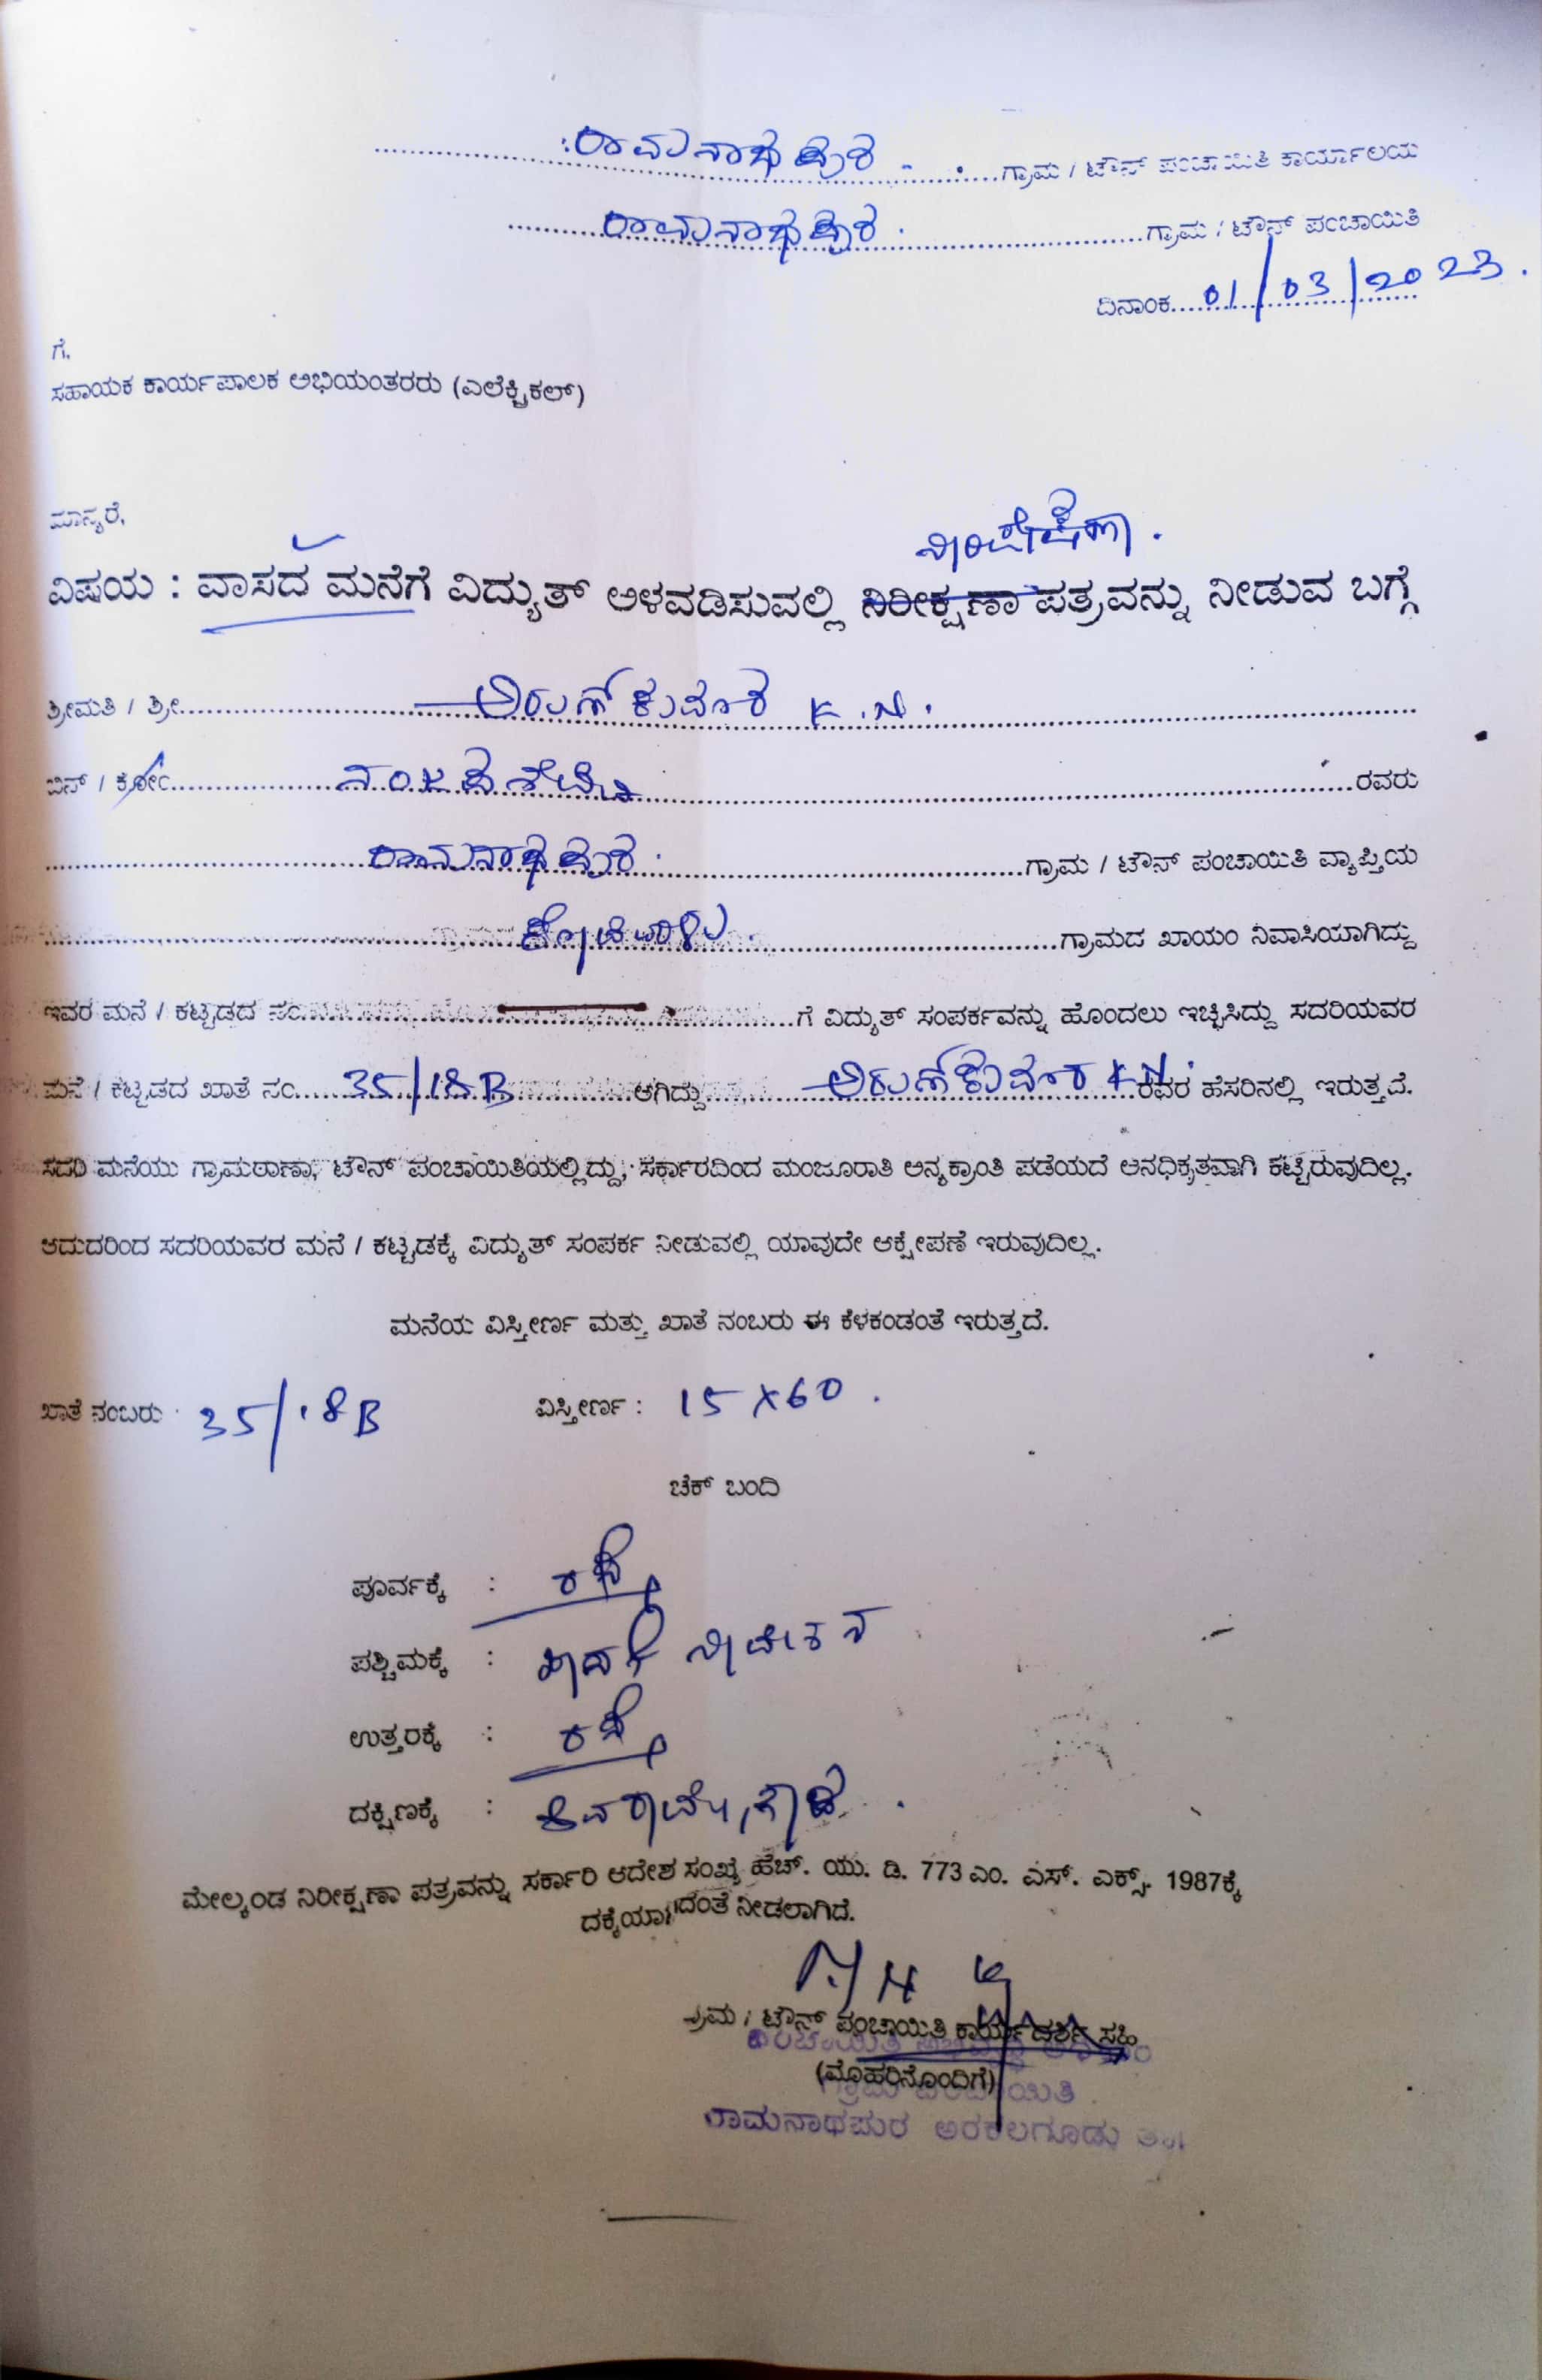 ರಾಮನಾಥಪುರ ಗ್ರಾಮ / ಟೌನ್ ಪಂಚಾಯಿತಿ ಕಾರ್ಯಾಲಯ
ರಾಮನಾಥಪುರ. ಗ್ರಾಮ / ಟೌನ್ ಪಂಚಾಯಿತಿ
ದಿನಾಂಕ 01/03/2023.
ಗೆ,
ಸಹಾಯಕ ಕಾರ್ಯಪಾಲಕ ಅಭಿಯಂತರರು (ಎಲೆಕ್ಟ್ರಿಕಲ್)
ಮಾನ್ಯರೆ,
ನಿರಾಪೇಕ್ಷಣಾ.
ವಿಷಯ : ವಾಸದ ಮನೆಗೆ ವಿದ್ಯುತ್ ಅಳವಡಿಸುವಲ್ಲಿ ನಿರೀಕ್ಷಣಾ ಪತ್ರವನ್ನು ನೀಡುವ ಬಗ್ಗೆ
ಶ್ರೀಮತಿ / ಶ್ರೀ ಅರುಣ್ ಕುಮಾರ K.N.
ಬಿನ್ / ಕೋಂ ನಂಜಪ್ಪಶೆಟ್ಟಿ ರವರು
ರಾಮನಾಥಪುರ. ಗ್ರಾಮ / ಟೌನ್ ಪಂಚಾಯಿತಿ ವ್ಯಾಪ್ತಿಯ
ಗ್ರಾಮದ ಖಾಯಂ ನಿವಾಸಿಯಾಗಿದ್ದು
ಇವರ ಮನೆ / ಕಟ್ಟಡದ ನಂ. ಗೆ ವಿದ್ಯುತ್ ಸಂಪರ್ಕವನ್ನು ಹೊಂದಲು ಇಚ್ಛಿಸಿದ್ದು ಸದರಿಯವರ
ಮನೆ / ಕಟ್ಟಡದ ಖಾತೆ ನಂ. 35/18B ಆಗಿದ್ದು ಅರುಣ್ ಕುಮಾರ K.N. ರವರ ಹೆಸರಿನಲ್ಲಿ ಇರುತ್ತದೆ.
ಸದರಿ ಮನೆಯು ಗ್ರಾಮಠಾಣಾ, ಟೌನ್ ಪಂಚಾಯಿತಿಯಲ್ಲಿದ್ದು, ಸರ್ಕಾರದಿಂದ ಮಂಜೂರಾತಿ ಅನ್ಯಕ್ರಾಂತಿ ಪಡೆಯದೆ ಅನಧಿಕೃತವಾಗಿ ಕಟ್ಟಿರುವುದಿಲ್ಲ.
ಆದುದರಿಂದ ಸದರಿಯವರ ಮನೆ / ಕಟ್ಟಡಕ್ಕೆ ವಿದ್ಯುತ್ ಸಂಪರ್ಕ ನೀಡುವಲ್ಲಿ ಯಾವುದೇ ಆಕ್ಷೇಪಣೆ ಇರುವುದಿಲ್ಲ.
ಮನೆಯ ವಿಸ್ತೀರ್ಣ ಮತ್ತು ಖಾತೆ ನಂಬರು ಈ ಕೆಳಕಂಡಂತೆ ಇರುತ್ತದೆ.
ಖಾತೆ ನಂಬರು 35/18B ವಿಸ್ತೀರ್ಣ : 15X60.
ಚೆಕ್ ಬಂದಿ
ಪೂರ್ವಕ್ಕೆ : ರಸ್ತೆ
ಪಶ್ಚಿಮಕ್ಕೆ : ನಿವೇಶನ
ಉತ್ತರಕ್ಕೆ : ರಸ್ತೆ
ದಕ್ಷಿಣಕ್ಕೆ :
ಮೇಲ್ಕಂಡ ನಿರೀಕ್ಷಣಾ ಪತ್ರವನ್ನು ಸರ್ಕಾರಿ ಆದೇಶ ಸಂಖ್ಯೆ ಹೆಚ್. ಯು. ಡಿ. 773 ಎಂ. ಎಸ್. ಎಕ್ಸ್. 1987ಕ್ಕೆ
ನೀಡಲಾಗಿದೆ.
ಟೌನ್ ಪಂಚಾಯಿತಿ ಕಾರ್ಯದರ್ಶಿ ಸಹಿ
(ಮೊಹರಿನೊಂದಿಗೆ)
ರಾಮನಾಥಪುರ ಅರಕಲಗೂಡು